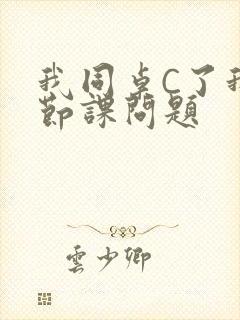 我同桌C了我
節課問題
雲少卿